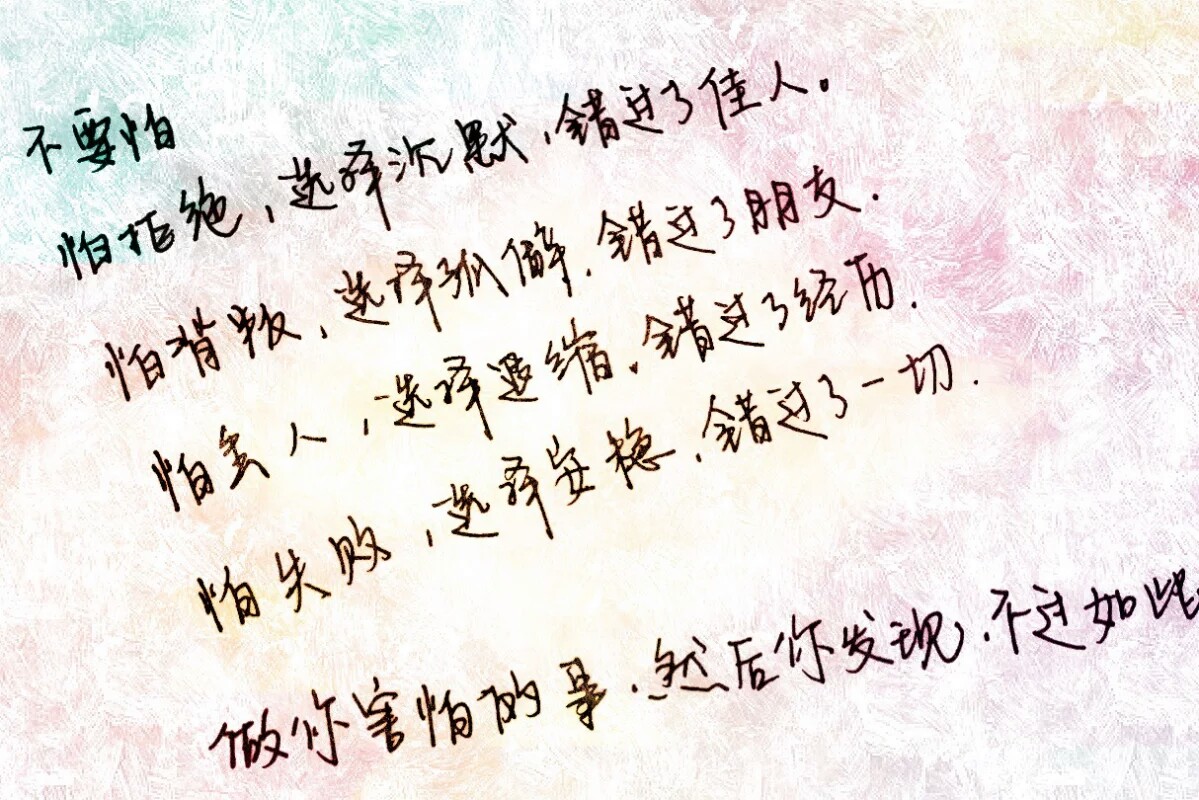 不要怕
怕拒绝,选择沉默,错过了佳人。
怕背叛,选择孤僻,错过了朋友.
怕丢人,选择退缩,错过了经历.
怕失败,选择安稳,错过了一切.
做你害怕的事,然后你发现,不过如此.